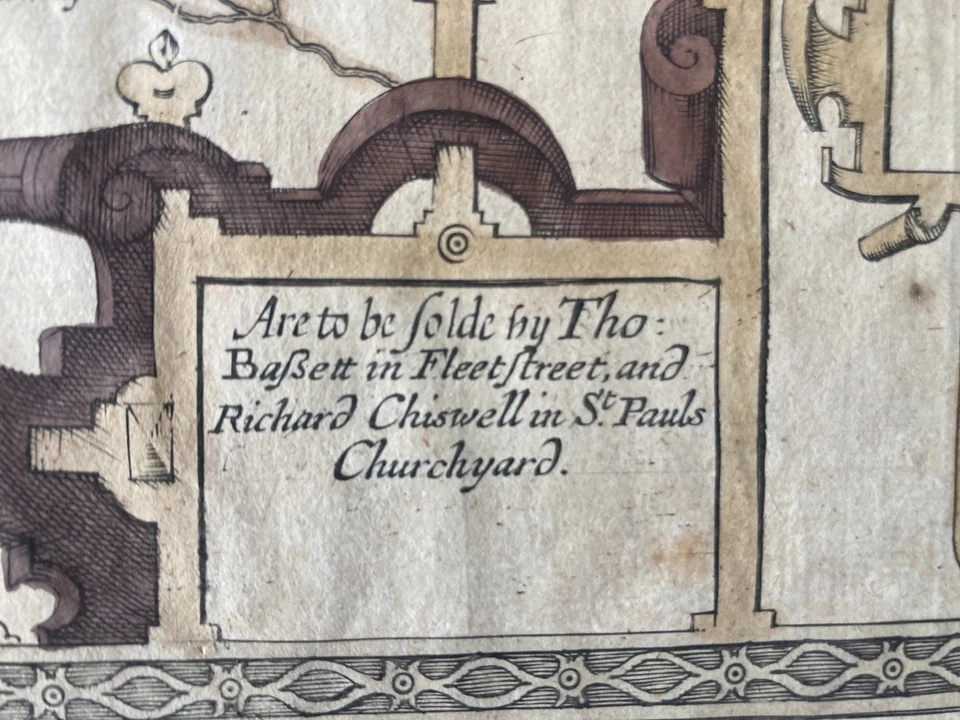 Are to be ſolde by Tho:
Baßett in Fleetſtreet, and
Richard Chiswell in St. Pauls
Churchyard.